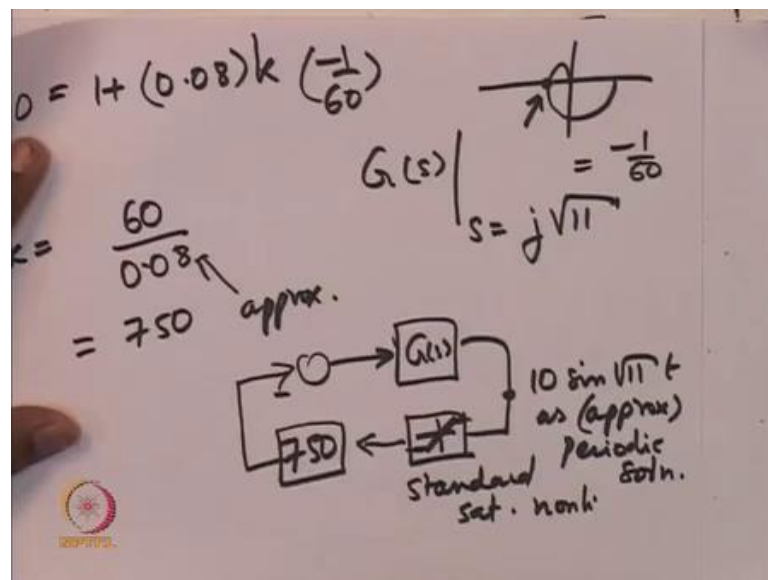 0 = 1 + (0.08) k (-1/60)
G(s) | s = j√11 = -1/60
k = 60/0.08
approx.
= 750
G(s)
10 sin √11 t
as (approx)
periodic
soln.
750
standard
sat. nonli.
NPTEL